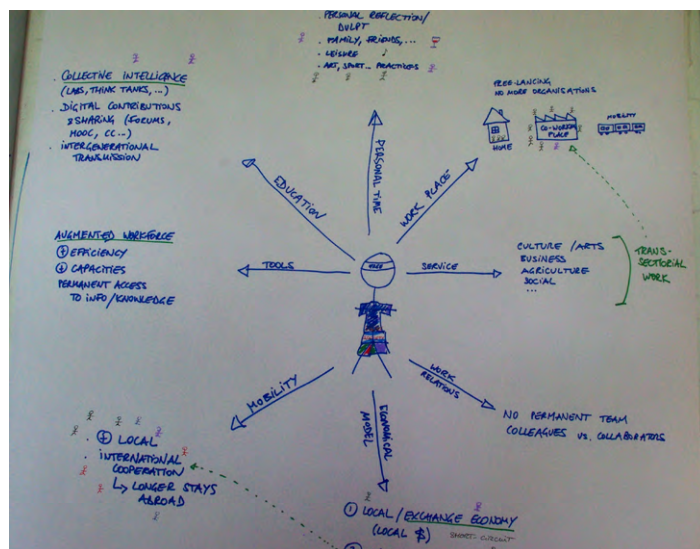 . PERSONAL REFLECTION/
DVLPT
. FAMILY, FRIENDS, ...
. LEISURE
. ART, SPORT... PRACTICES
. COLLECTIVE INTELLIGENCE
(LABS, THINK TANKS, ...)
. DIGITAL CONTRIBUTIONS
& SHARING (FORUMS,
MOOC, CC...)
. INTERGENERATIONAL
TRANSMISSION
FREE-LANCING
NO MORE ORGANISATIONS
HOME
CO-WORKING
PLACE
MOBILITY
EDUCATION
PERSONAL TIME
WORK PLACE
AUGMENTED WORKFORCE
+ EFFICIENCY
+ CAPACITIES
PERMANENT ACCESS
TO INFO/KNOWLEDGE
TOOLS
SERVICE
CULTURE / ARTS
BUSINESS
AGRICULTURE
SOCIAL
...
TRANS-
SECTORIAL
WORK
MOBILITY
ECONOMICAL
MODEL
WORK
RELATIONS
NO PERMANENT TEAM
COLLEAGUES vs. COLLABORATORS
. + LOCAL
. INTERNATIONAL
COOPERATION
↳ LONGER STAYS
ABROAD
① LOCAL / EXCHANGE ECONOMY
(LOCAL $) SHORT-CIRCUIT